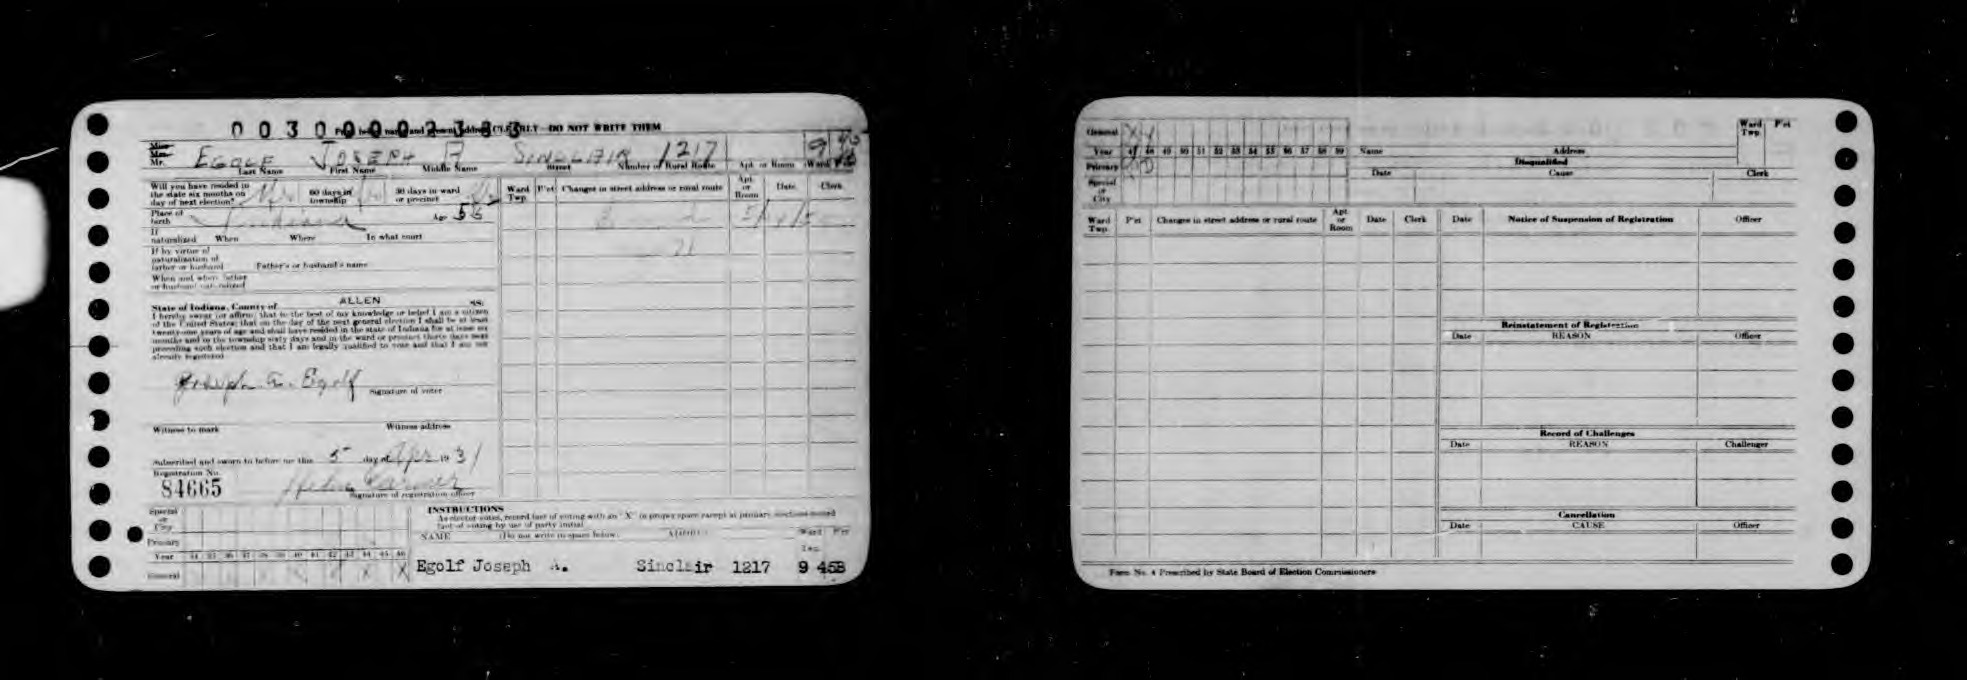 0030000238
Print full name and present address CLEARLY - DO NOT WRITE THEM
Miss
Mrs.
Mr. EGOLF JOSEPH A SINCLAIR 1217 9
Last Name First Name Middle Name Street Number of Rural Route Apt. or Room Ward
Will you have resided in the state six months on day of next election? Yes 60 days in township 30 days in ward or precinct
Place of birth Indiana Age 56
If naturalized When Where In what court
If by virtue of naturalization of father or husband Father's or husband's name
When and where father or husband naturalized
Ward Twp. P'ct Changes in street address or rural route Apt. or Room Date Clerk
State of Indiana, County of ALLEN ss:
I hereby swear (or affirm) that to the best of my knowledge or belief I am a citizen
of the United States; that on the day of the next general election I shall be at least
twenty-one years of age and shall have resided in the state of Indiana for at least six
months and in the township sixty days and in the ward or precinct thirty days next
preceding such election and that I am legally qualified to vote and that I am not
already registered
Joseph A. Egolf
Signature of voter
Witness to mark Witness address
Subscribed and sworn to before me this 5 day of Apr 193
Registration No.
84665
Signature of registration officer
Special or City
Primary
Year 34 35 36 37 38 39 40 41 42 43 44 45 46
General X X X
INSTRUCTIONS
As elector votes, record fact of voting with an "X" in proper space except at primary elections record
fact of voting by use of party initial
NAME (Do not write in space below) Address Ward P'ct
Egolf Joseph A. Sinclair 1217 9 453
General X
Year 47 48 49 50 51 52 53 54 55 56 57 58 59
Primary D
Special or City
Name Address
Ward Twp. P'ct
Disqualified
Date Cause Clerk
Ward Twp. P'ct Changes in street address or rural route Apt. or Room Date Clerk
Date Notice of Suspension of Registration Officer
Reinstatement of Registration
Date REASON Officer
Record of Challenges
Date REASON Challenger
Cancellation
Date CAUSE Officer
Form No. 4 Prescribed by State Board of Election Commissioners